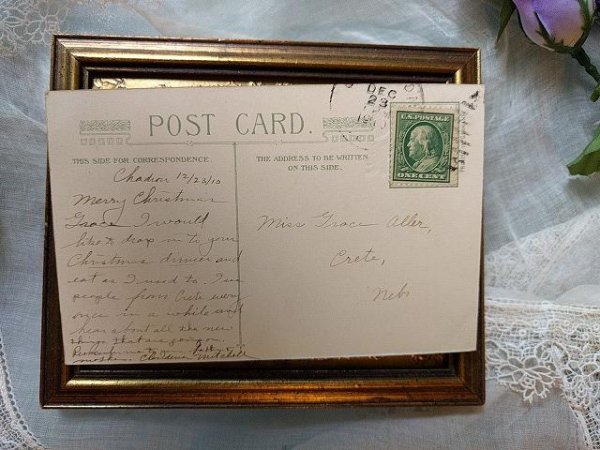 POST CARD.
THIS SIDE FOR CORRESPONDENCE.
THE ADDRESS TO BE WRITTEN
ON THIS SIDE.
DEC
23
U.S. POSTAGE
ONE CENT
Chadron 12/23/10
Merry Christmas
Grace I would
like to drop in to your
Christmas dinner and
eat as I used to. I see
people from Crete every
once in a while and
hear about all the new
things that are going on.
Remember me to
mother. Mitchell
Miss Grace Aller,
Crete,
Nebr